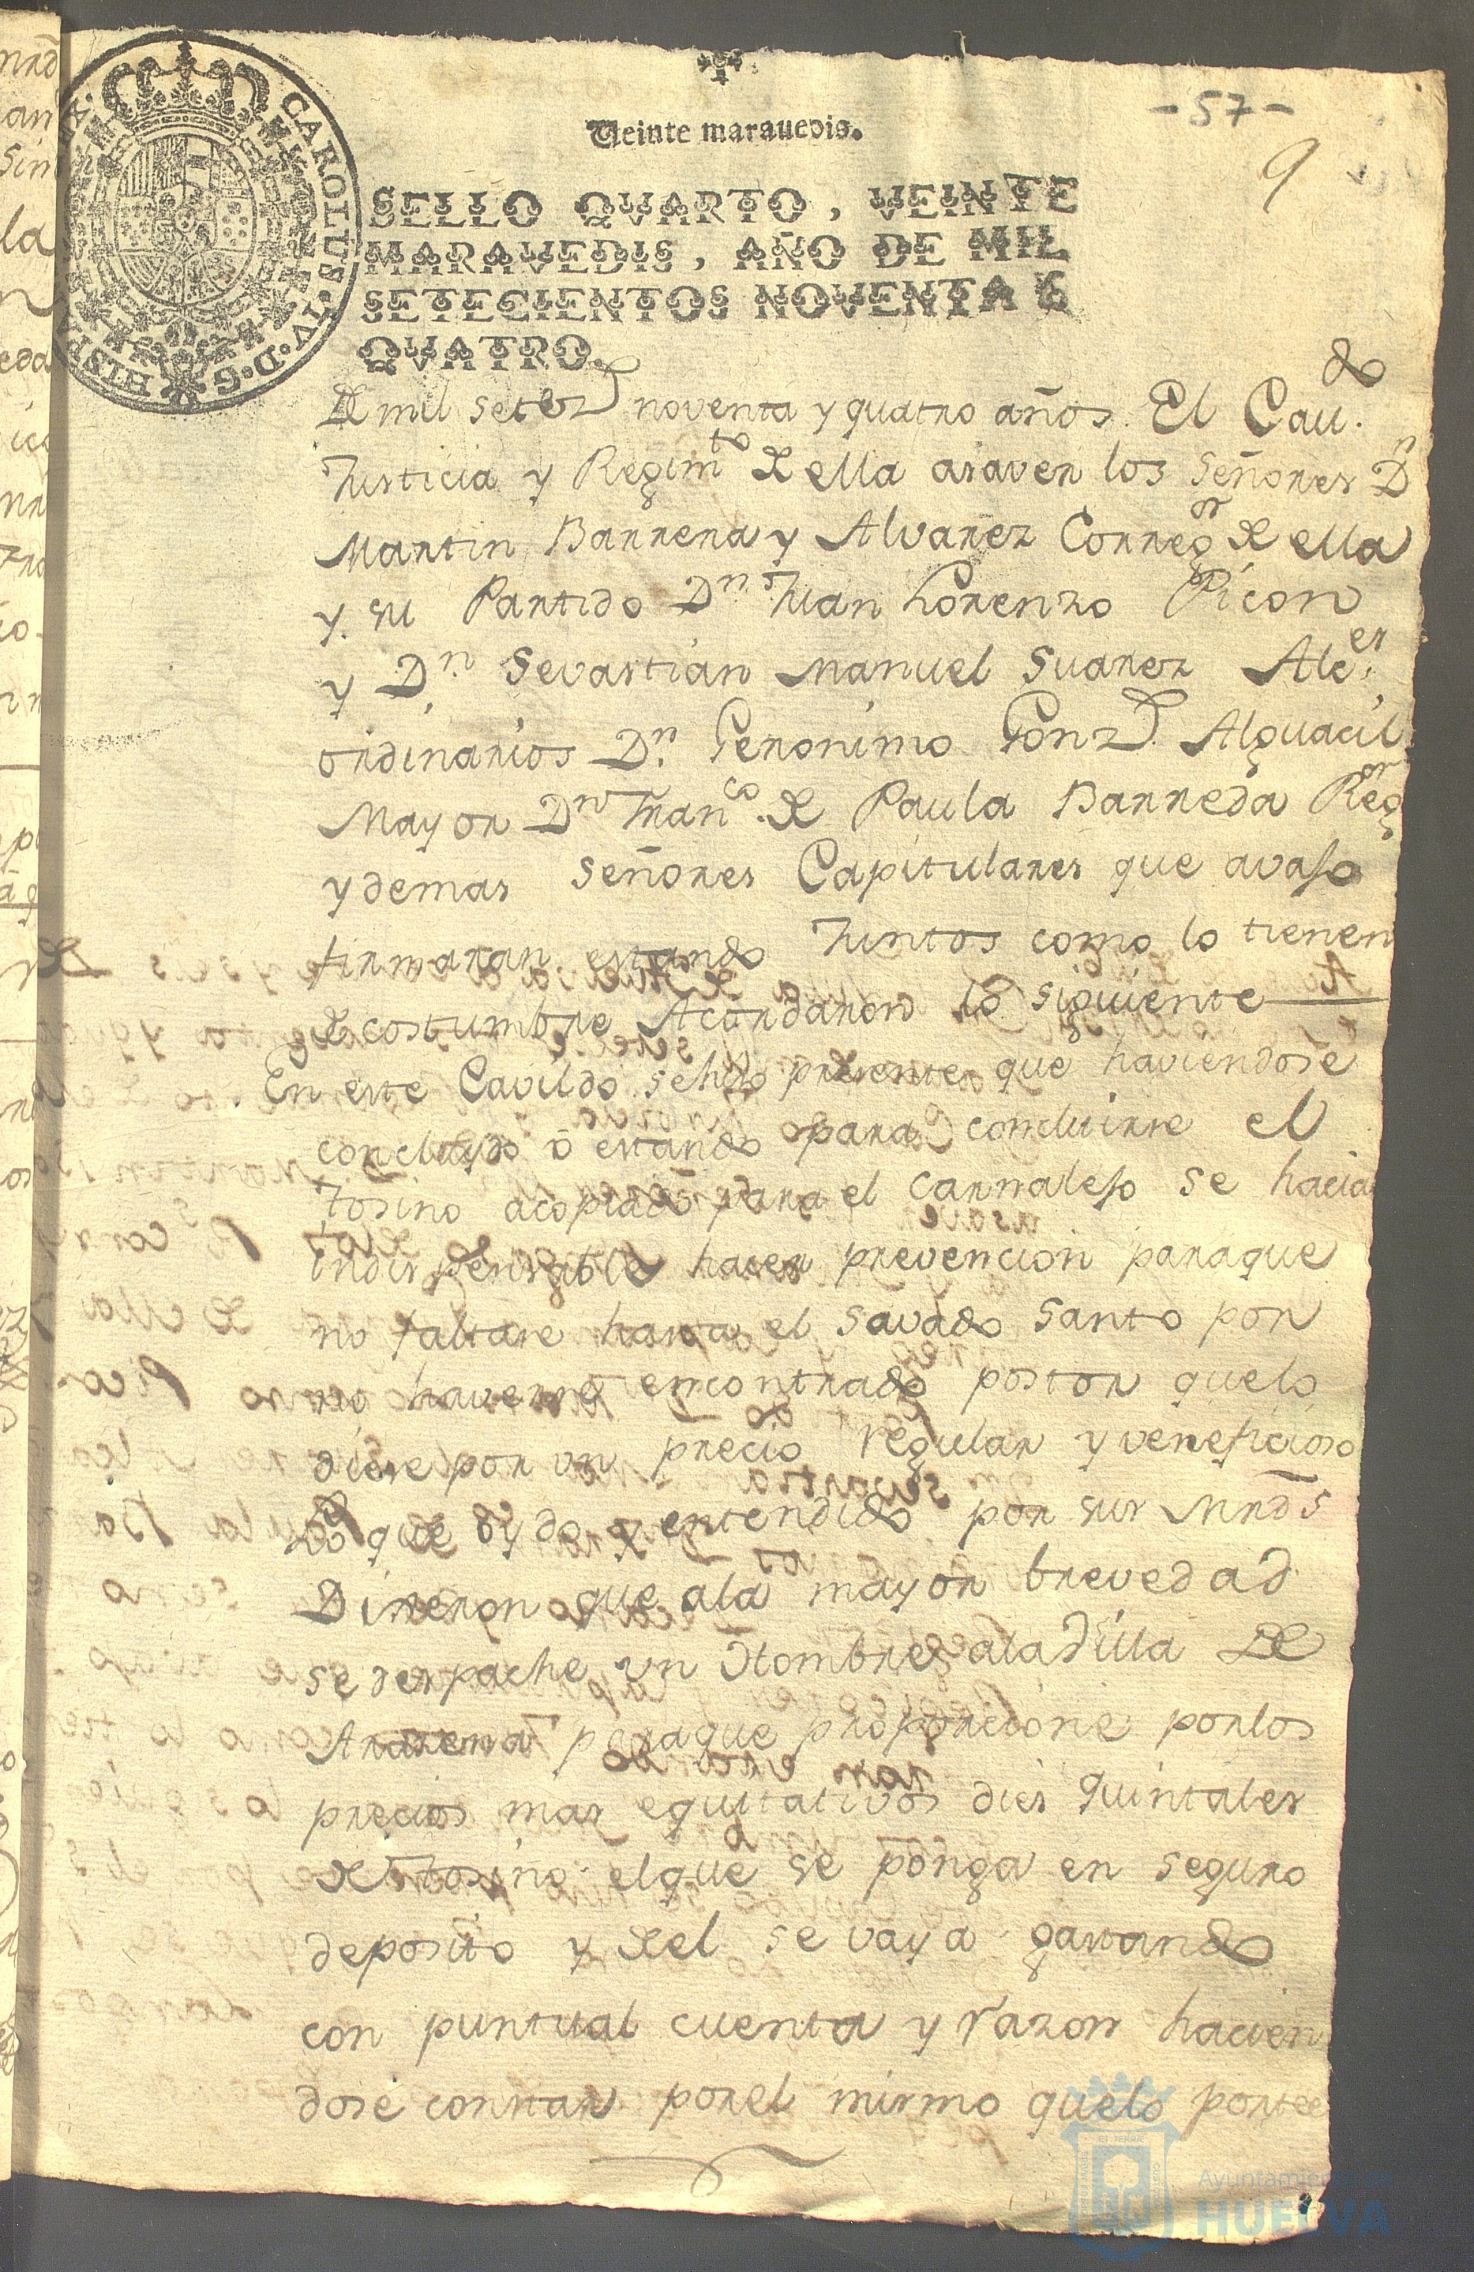 -57-
9
Veinte marauedis.
CAROLUS·IV·D·G·HISPA
SELLO QVARTO, VEINTE
MARAVEDIS, AÑO DE MIL
SETECIENTOS NOVENTA Y
QVATRO.
De mil setez noventa y quatro años. El Cau.do
Justicia y Regimto de ella asaver los Señores Dn
Martin Barrera y Alvarez Corregor de ella
y su Partido Dn Juan Lorenzo Picon
y Dn Sevastian Manuel Suarez Alces
ordinarios Dn Geronimo Gonz Alguacil
Mayor Dn Franco de Paula Barreda Regor
y demas Señores Capitulares que avajo
firmaran estando Juntos como lo tienen
de costumbre Acordaron lo siguiente
En este Cavildo sehizo presente que haviendose
concluydo ô estando para concluirse el
tosino acopiado para el carnalejo se hacia
indispensable hacer prevencion paraque
no faltase hasta el Savado Santo por
no haverse encontrado postor quelo
diese por un precio regular y veneficioso
Lo que oydo y entendido por sus Mrds
Dixeron que ala mayor brevedad
se despache un Hombre alaVilla de
Arasena paraque proporcione porlos
precios mas equitativos dies quintales
de tosino elque se ponga en seguro
deposito y del se vaya gastando
con puntual cuenta y razon hacien
dose constar porel mismo quelo portee
Ayuntamiento de
HUELVA